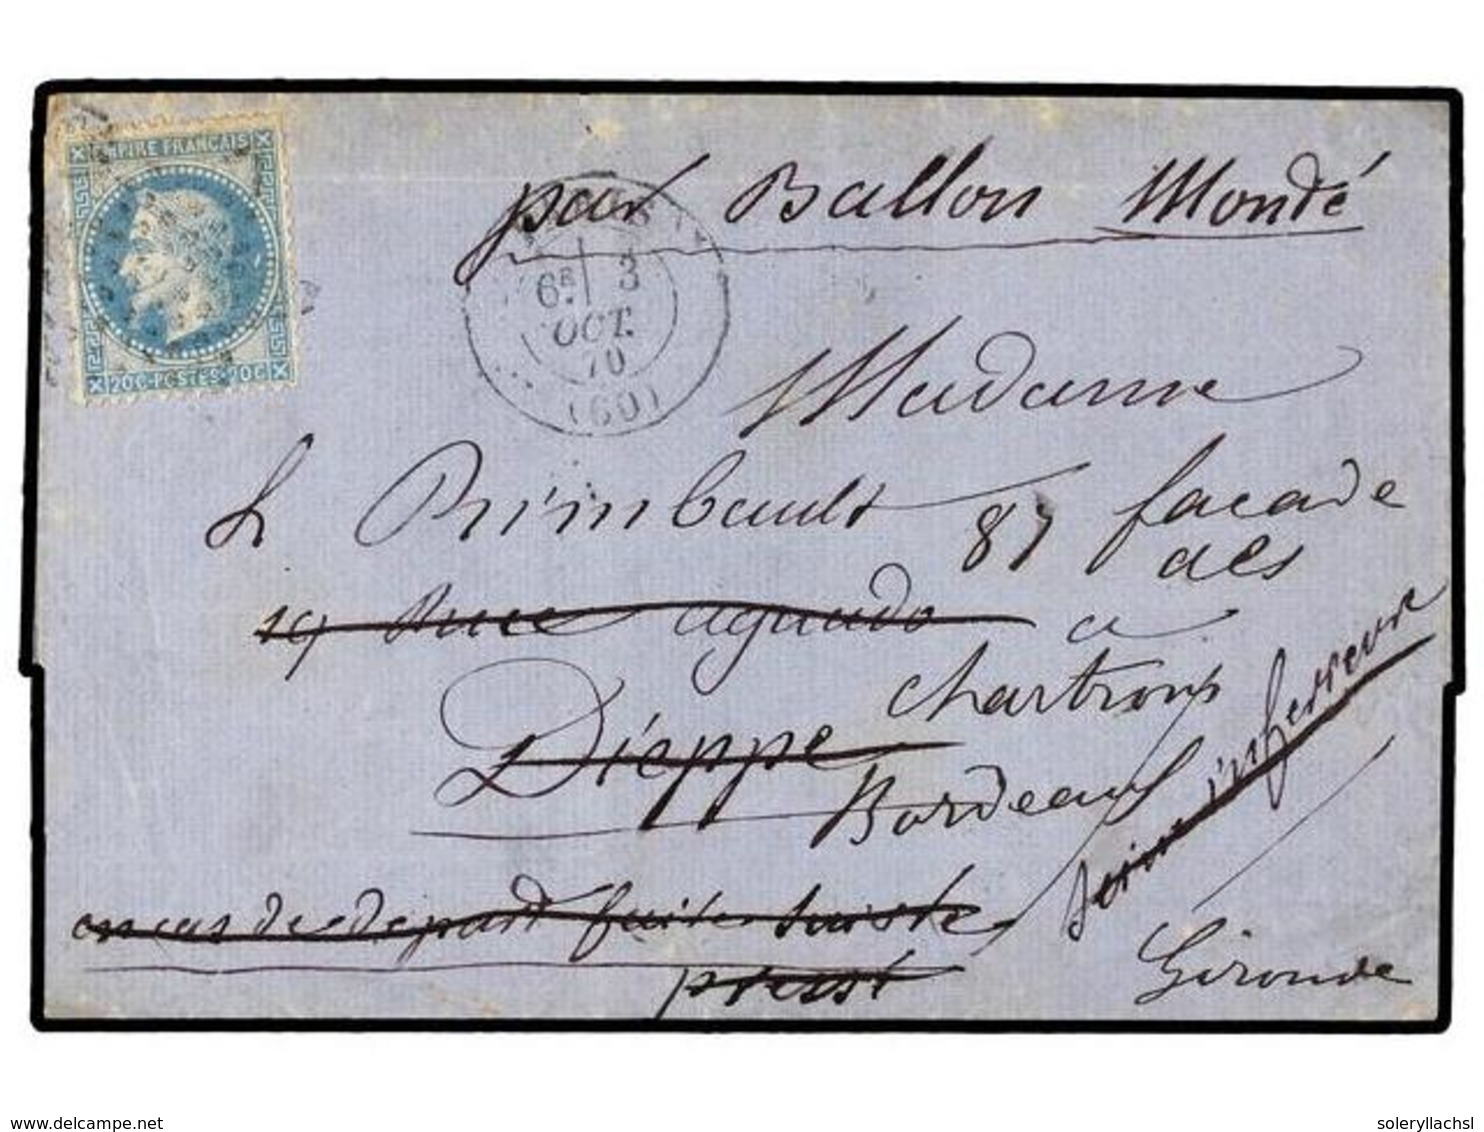 EMPIRE FRANÇAIS
20 C-POSTES-20 C
par Ballon Monté
6E 3
OCT.
70
(60)
Madame
L Rimbault 87 facade
des
19 rue aguado a
chartrons
Dieppe
Bordeaux
Seine inferieure
en cas de depart faite suivre
presst
Gironde
delcampe.net
soleryllachsl